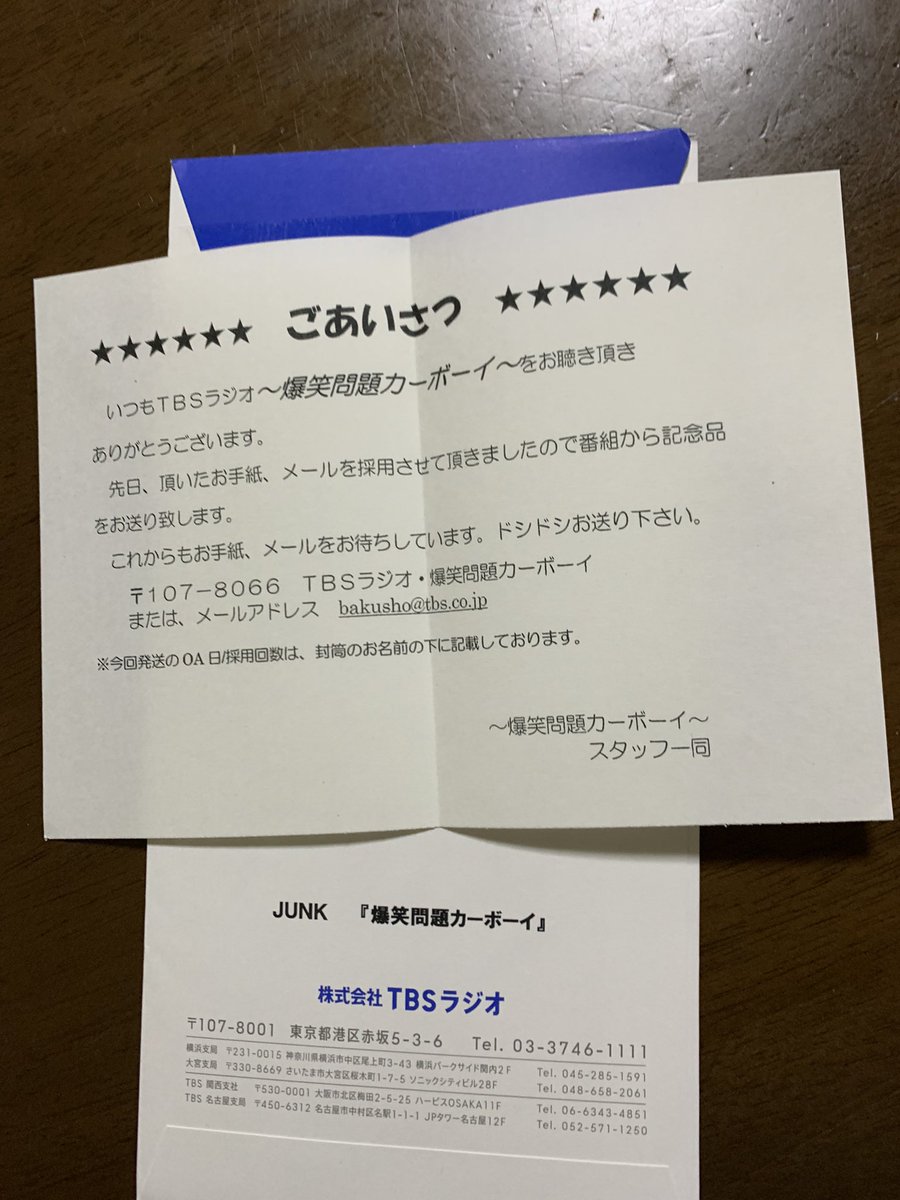 ★★★★★★ ごあいさつ ★★★★★★
いつもTBSラジオ～爆笑問題カーボーイ～をお聴き頂き
ありがとうございます。
先日、頂いたお手紙、メールを採用させて頂きましたので番組から記念品
をお送り致します。
これからもお手紙、メールをお待ちしています。ドシドシお送り下さい。
〒107-8066 TBSラジオ・爆笑問題カーボーイ
または、メールアドレス bakusho@tbs.co.jp
※今回発送のOA日/採用回数は、封筒のお名前の下に記載しております。
～爆笑問題カーボーイ～
スタッフ一同
JUNK 『爆笑問題カーボーイ』
株式会社TBSラジオ
〒107-8001 東京都港区赤坂5-3-6 Tel. 03-3746-1111
横浜支局 〒231-0015 神奈川県横浜市中区尾上町3-43 横浜パークサイド関内2F Tel. 045-285-1591
大宮支局 〒330-8669 さいたま市大宮区桜木町1-7-5 ソニックシティビル28F Tel. 048-658-2061
TBS 関西支社 〒530-0001 大阪市北区梅田2-5-25 ハービスOSAKA11F Tel. 06-6343-4851
TBS 名古屋支局 〒450-6312 名古屋市中村区名駅1-1-1 JPタワー名古屋12F Tel. 052-571-1250